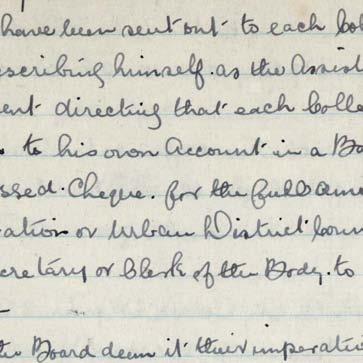 have been sent out to each Col
scribing himself as the Assist
ent directing that each Colle
to his own Account in a Ba
ssed Cheque. for the full amo
ration or Urban District Coun
cretary or Clerk of the Body. to
the Board deem it their imperati